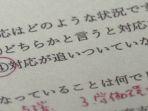 応はどのような状況です
どちらかと言うと対応
①対応が追いついていか
なっていることは何でし